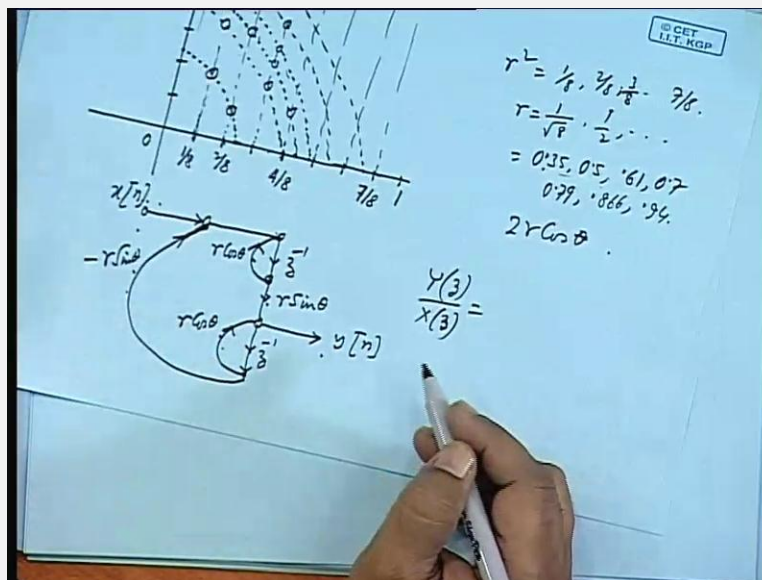 © CET
I.I.T. KGP
r² = 1/8, 2/8, 3/8 - 7/8.
r = 1/√8, 1/2, ...
= 0.35, 0.5, .61, 0.7
0.79, .866, .94.
2rCosθ.
0 1/8 2/8 4/8 7/8 1
x[n]
-rSinθ
rCosθ
z⁻¹
rSinθ
rCosθ
z⁻¹
y[n]
Y(z)/X(z) =